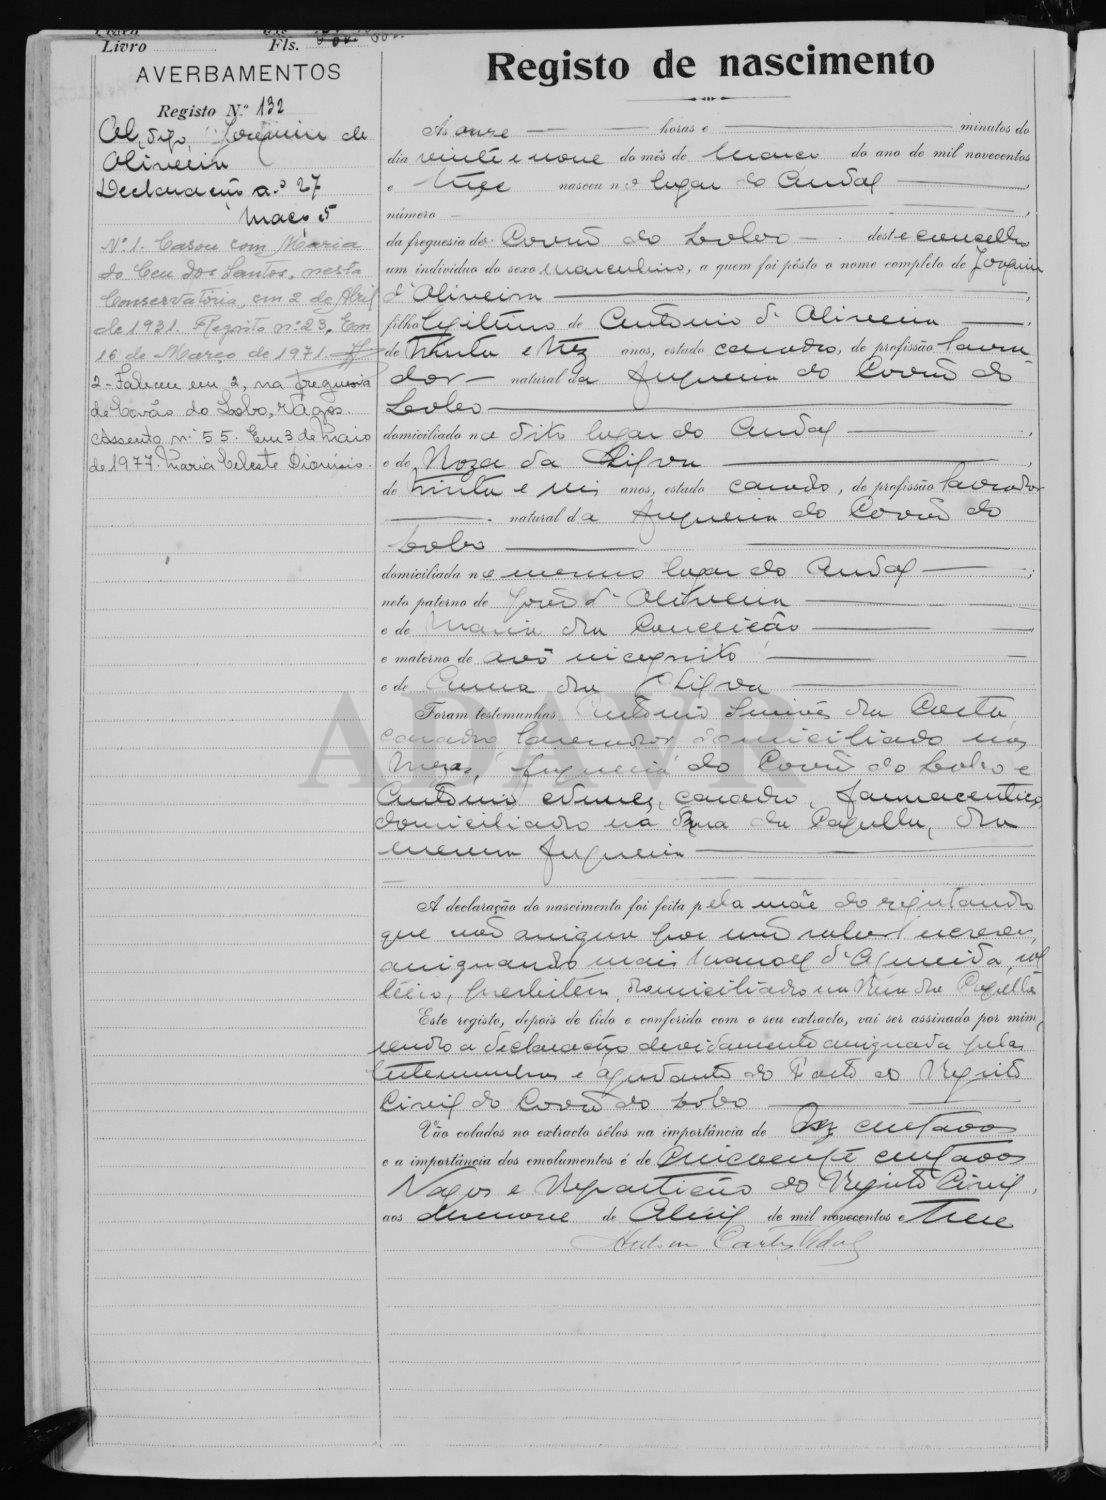 Livro
Fls.
AVERBAMENTOS
Registo N.º 132
digo, Joaquim de
Oliveira
Declaração n.º 27
Maço 5
Nº 1. Casou com Maria
do Ceu dos Santos, nesta
Conservatória, em 2 de Abril
de 1931. Registo nº 23. Em
16 de Março de 1971.
2 - Faleceu em 2, na freguesia
de Covão do Lobo, Vagos.
Assento n.º 55. Em 3 de Maio
de 1977. Maria Celeste Dionísio.
Registo de nascimento
Ás onze horas e minutos do
dia vinte e nove do mês de Março do ano de mil novecentos
e treze nasceu no lugar do
número
da freguesia de Covão do Lobo deste concelho
um individuo do sexo masculino, a quem foi pôsto o nome completo de Joaquim
d'Oliveira
filho legitimo de Antonio d'Oliveira
de trinta e trez anos, estado casado, de profissão lavra-
dor natural da freguesia do Covão do
Lobo
domiciliado no dito lugar do
e de Roza da Silva
de trinta e seis anos, estado casado, de profissão lavrador
natural da freguesia do Covão do
Lobo
domiciliada no mesmo lugar do
neto paterno de João d'Oliveira
e de Maria da Conceição
e materno de avô incognito
e de Anna da Silva
Foram testemunhas Antonio da Costa,
casado lavrador domiciliado nas
freguesia do Covão do Lobo e
Antonio Nunes, casado, farmaceutico,
domiciliado na Rua da Capella, da
mesma freguesia
A declaração do nascimento foi feita pela mãe do registando
que não assigna por não saber escrever,
assignando mais Manoel d'Almeida, sol-
teiro, presbitero, domiciliado na Rua da Capella
Este registo, depois de lido e conferido com o seu extracto, vai ser assinado por mim,
sendo a declaração devidamente assignada pelas
testemunhas e ajudante do Posto do Registo
Civil do Covão do Lobo
Vão colados no extracto sêlos na importância de dez centavos
e a importância dos emolumentos é de cincoenta centavos
Vagos e Repartição do Registo Civil,
aos dezenove de Abril de mil novecentos e treze
ADAVR